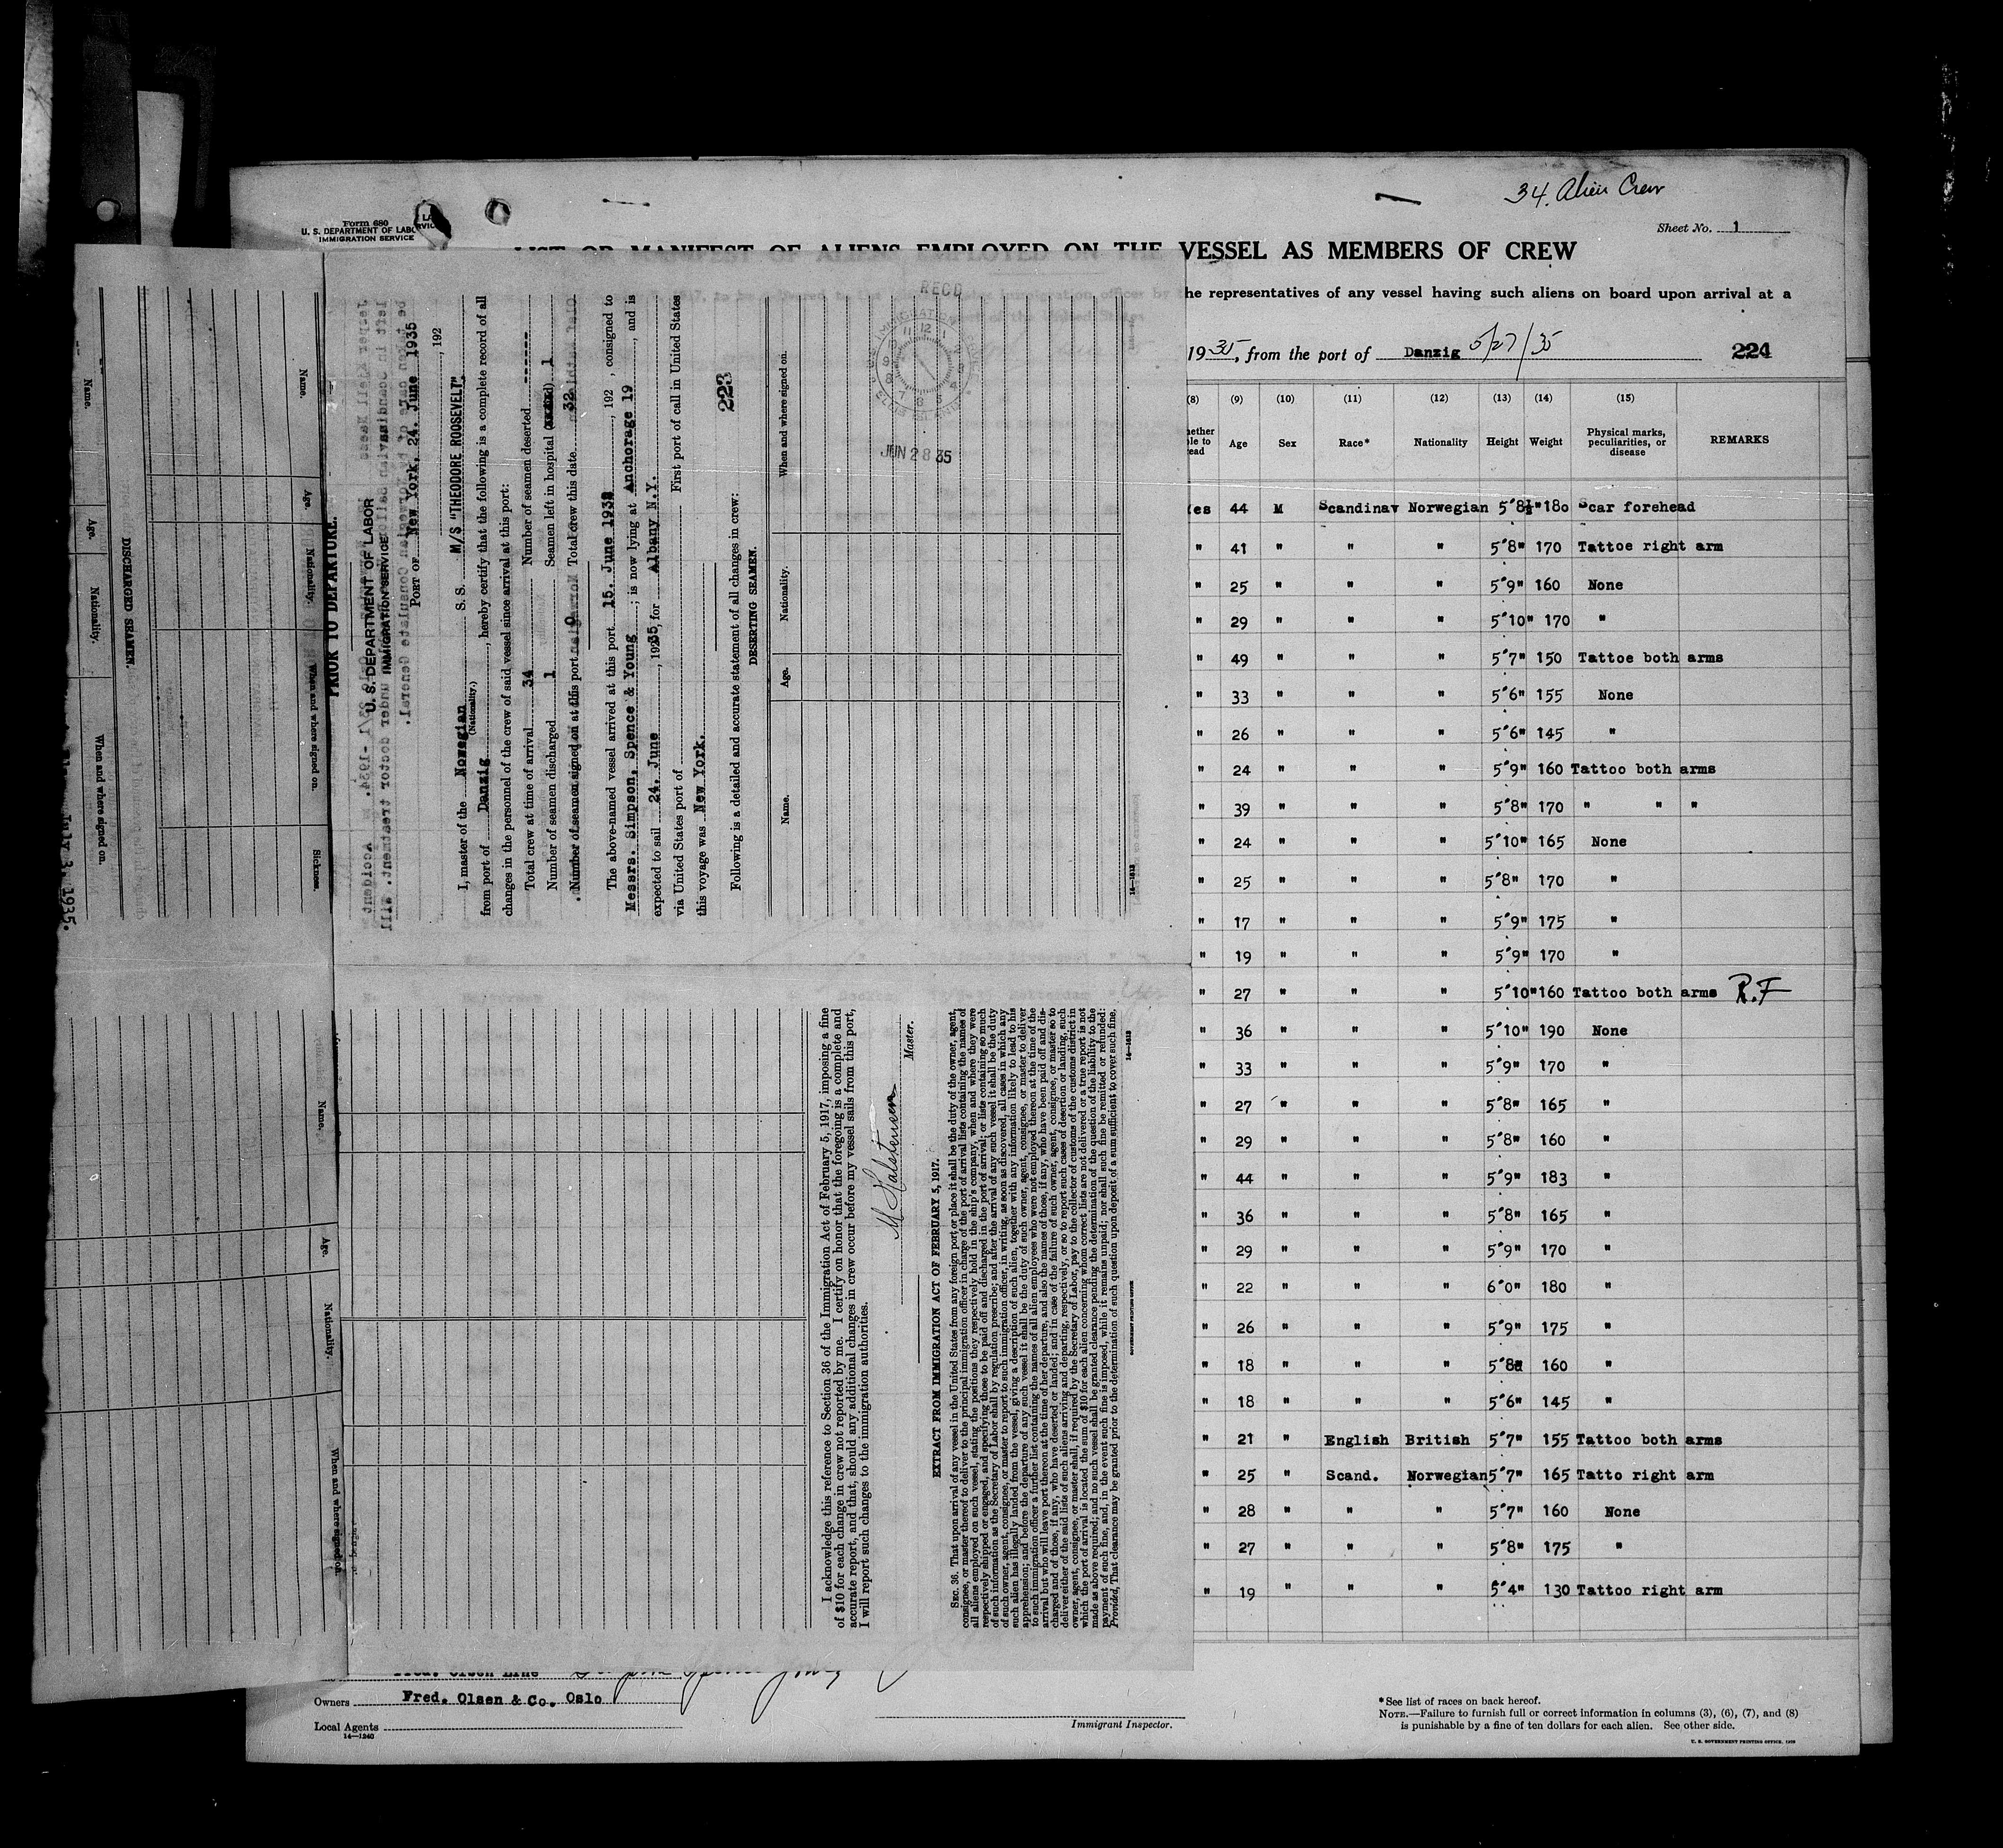 34. Alien Crew
Form 680
U. S. DEPARTMENT OF LABOR
IMMIGRATION SERVICE
Sheet No. 1
LIST OR MANIFEST OF ALIENS EMPLOYED ON THE VESSEL AS MEMBERS OF CREW
he representatives of any vessel having such aliens on board upon arrival at a
19 35, from the port of Danzig 5/27/35 224
(8) (9) (10) (11) (12) (13) (14) (15)
Age Sex Race* Nationality Height Weight Physical marks, peculiarities, or disease REMARKS
es 44 M Scandinav Norwegian 5'8½" 180 Scar forehead
" 41 " " " 5'8" 170 Tattoe right arm
" 25 " " " 5'9" 160 None
" 29 " " " 5'10" 170 "
" 49 " " " 5'7" 150 Tattoe both arms
" 33 " " " 5'6" 155 None
" 26 " " " 5'6" 145 "
" 24 " " " 5'9" 160 Tattoo both arms
" 39 " " " 5'8" 170 " " "
" 24 " " " 5'10" 165 None
" 25 " " " 5'8" 170 "
" 17 " " " 5'9" 175 "
" 19 " " " 5'9" 170 "
" 27 " " " 5'10" 160 Tattoo both arms R.F
" 36 " " " 5'10" 190 None
" 33 " " " 5'9" 170 "
" 27 " " " 5'8" 165 "
" 29 " " " 5'8" 160 "
" 44 " " " 5'9" 183 "
" 36 " " " 5'8" 165 "
" 29 " " " 5'9" 170 "
" 22 " " " 6'0" 180 "
" 26 " " " 5'9" 175 "
" 18 " " " 5'8" 160 "
" 18 " " " 5'6" 145 "
" 21 " English British 5'7" 155 Tattoo both arms
" 25 " Scand. Norwegian 5'7" 165 Tatto right arm
" 28 " " " 5'7" 160 None
" 27 " " " 5'8" 175 "
" 19 " " " 5'4" 130 Tattoo right arm
Fred. Olsen Line
Owners Fred. Olsen & Co. Oslo
Local Agents
14—1240
Immigrant Inspector.
*See list of races on back hereof.
NOTE.—Failure to furnish full or correct information in columns (3), (6), (7), and (8)
is punishable by a fine of ten dollars for each alien. See other side.
U. S. GOVERNMENT PRINTING OFFICE
PRIOR TO DEPARTURE.
U. S. DEPARTMENT OF LABOR
IMMIGRATION SERVICE
PORT OF New York, 24. June 1935
, 192
I, master of the Norwegian S. S. M/S "THEODORE ROOSEVELT",
(Nationality.)
from port of Danzig, hereby certify that the following is a complete record of all
changes in the personnel of the crew of said vessel since arrival at this port:
Total crew at time of arrival 34 Number of seamen deserted ------
Number of seamen discharged 1 Seamen left in hospital 1
Number of seamen signed on at this port 0 Total crew this date 32
The above-named vessel arrived at this port 15. June 1935, 192 , consigned to
Messrs. Simpson, Spence & Young ; is now lying at Anchorage 19, and is
expected to sail 24. June, 1935, for Albany N.Y.
via United States port of First port of call in United States
this voyage was New York.
223
Following is a detailed and accurate statement of all changes in crew:
DESERTING SEAMEN.
Name. Age. Nationality. When and where signed on.
RECD
IMMIGRATION
ELLIS ISLAND
JUN 28 35
14—1813
I acknowledge this reference to Section 36 of the Immigration Act of February 5, 1917, imposing a fine
of $10 for each change in crew not reported by me. I certify on honor that the foregoing is a complete and
accurate report, and that, should any additional changes in crew occur before my vessel sails from this port,
I will report such changes to the immigration authorities.
Master.
EXTRACT FROM IMMIGRATION ACT OF FEBRUARY 5, 1917.
SEC. 36. That upon arrival of any vessel in the United States from any foreign port or place it shall be the duty of the owner, agent,
consignee, or master thereof to deliver to the principal immigration officer in charge of the port of arrival lists containing the names of
all aliens employed on such vessel, stating the positions they respectively hold in the ship's company, when and where they were
respectively shipped or engaged, and specifying those to be paid off and discharged in the port of arrival; or lists containing so much
of such information as the Secretary of Labor shall by regulation prescribe; and after the arrival of any such vessel it shall be the duty
of such owner, agent, consignee, or master to report to such immigration officer, in writing, as soon as discovered, all cases in which any
such alien has illegally landed from the vessel, giving a description of such alien, together with any information likely to lead to his
apprehension; and before the departure of any such vessel it shall be the duty of such owner, agent, consignee, or master to deliver
to such immigration officer a further list containing the names of all alien employees who were not employed thereon at the time of the
arrival but who will leave port thereon at the time of her departure, and also the names of those, if any, who have been paid off and dis-
charged and of those, if any, who have deserted or landed; and in case of the failure of such owner, agent, consignee, or master so to
deliver either of the said lists of such aliens arriving and departing, respectively, or so to report such cases of desertion or landing, such
owner, agent, consignee, or master shall, if required by the Secretary of Labor, pay to the collector of customs of the customs district in
which the port of arrival is located the sum of $10 for each alien concerning whom correct lists are not delivered or a true report is not
made as above required; and no such vessel shall be granted clearance pending the determination of the question of the liability to the
payment of such fine, and, in the event such fine is imposed, while it remains unpaid; nor shall such fine be remitted or refunded:
Provided, That clearance may be granted prior to the determination of such question upon deposit of a sum sufficient to cover such fine.
14—1813
DISCHARGED SEAMEN.
Name. Age. Nationality. When and where signed on.
July 3. 1935.
Name. Age. Nationality. When and where signed on. Sickness
Name. Age. Nationality. When and where signed on.